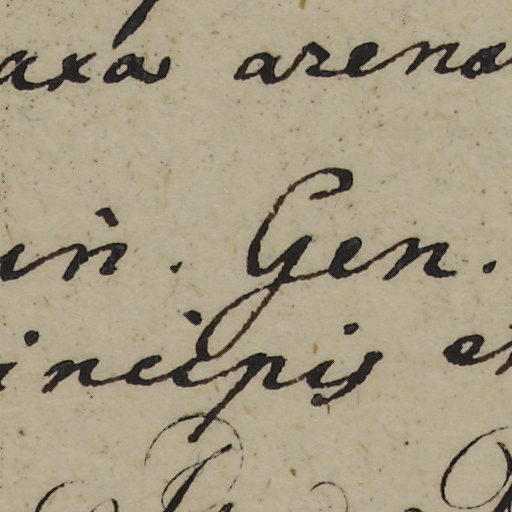 axa arena
in. Gen.
incipis e